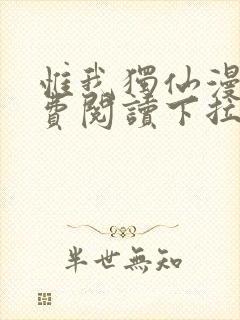 惟我獨仙漫
費閱讀下拉
半世無知